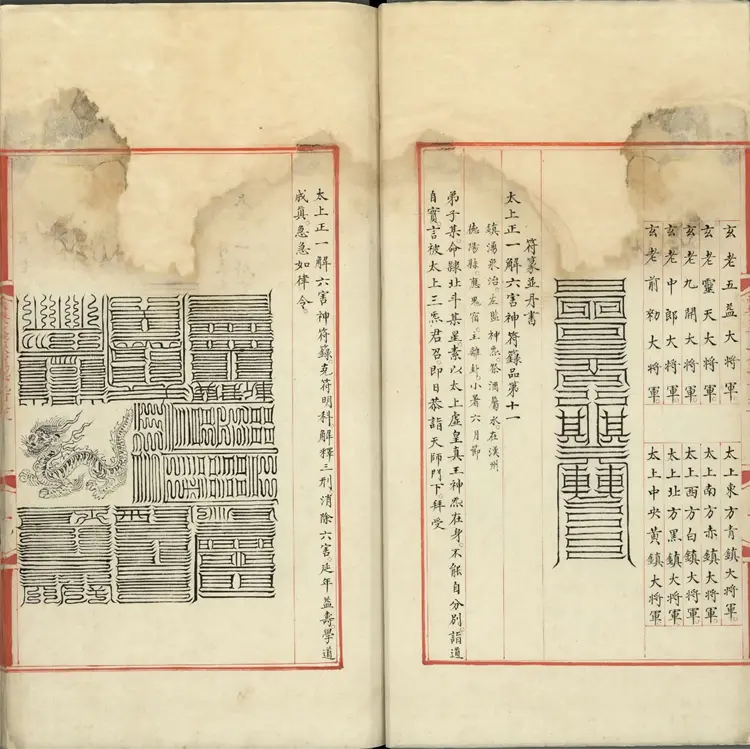 玄老五益大將軍
玄老靈天大將軍
玄老九開大將軍
玄老中郎大將軍
玄老前勑大將軍
太上東方青鎮大將軍
太上南方赤鎮大將軍
太上西方白鎮大將軍
太上北方黑鎮大將軍
太上中央黃鎮大將軍
符篆並丹書
太上正一解六害神符籙品第十一
鎮湧泉治左監神炁祭酒菊水在漢州
德陽縣應鬼宿主離卦小暑六月節
弟子某命隸北斗某星素以太上虛皇真王神炁在身不能自分別詣道
自實言被太上三炁君召即日恭詣天師門下拜受
太上正一解六害神符籙克符明科解釋三刑消除六害延年益壽學道
成真急急如律令。